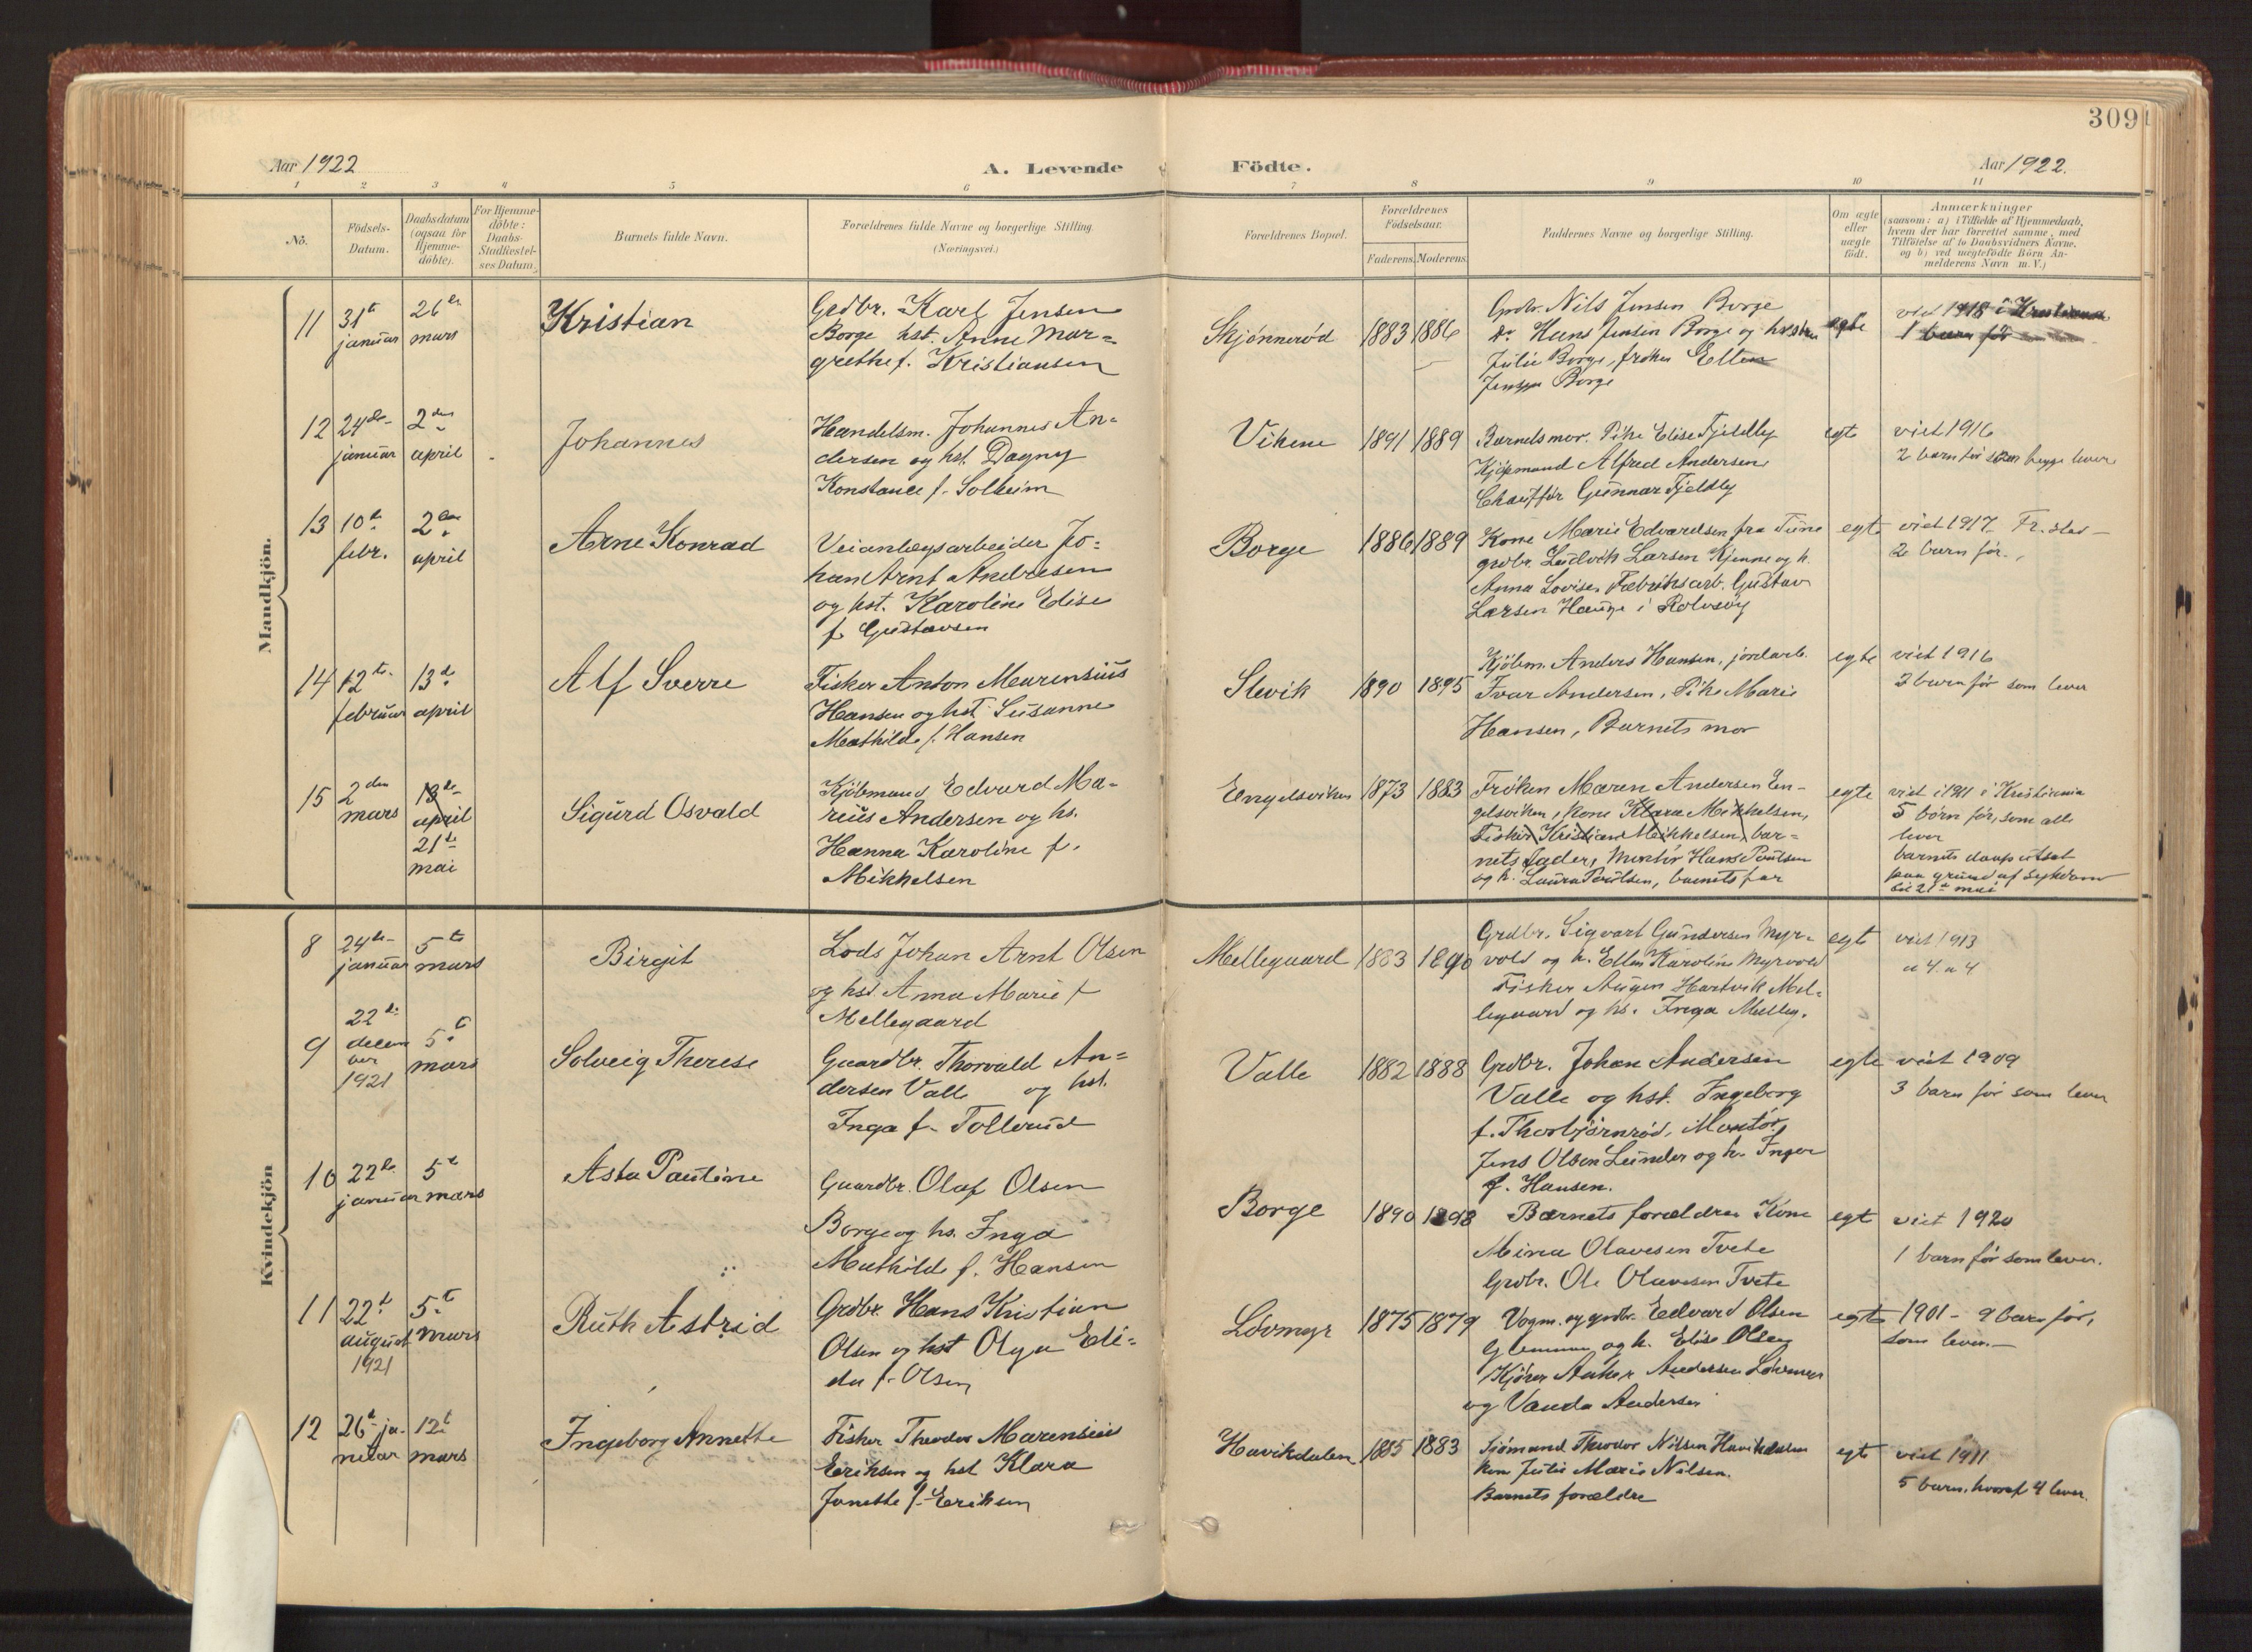 309
Aar 1922
A. Levende
Födte.
Aar 1922.
1 2 3 4 5 6 7 8 9 10 11
No.
Födsels-
Datum.
Daabsdatum
(ogsaa for
Hjemme-
döbte).
For Hjemme-
döbte:
Daabs-
Stadfæstel-
ses Datum.
Barnets fulde Navn.
Forældrenes fulde Navne og borgerlige Stilling.
(Næringsvei.)
Forældrenes Bopæl.
Forældrenes
Födselsaar.
Faderens.
Moderens.
Faddernes Navne og borgerlige Stilling.
Om ægte
eller
uægte
födt.
Anmærkninger
(saasom: a) i Tilfælde af Hjemmedaab,
hvem der har forrettet samme, med
Tilföielse af to Daabsvidners Navne.
og b) ved uægtefödte Börn An-
melderens Navn m. V.)
Mandkjön.
11
31t
januar
26de
mars
Kristian
Grdbr. Karl Jensen
Borge hst. Anne Mar-
grethe f. Kristiansen
Skjønnerød
1883
1886
Grdbr. Nils Jensen Borge
do Hans Jensen Borge og hustru
Julie Borge, frøken Ellen
Jensen Borge
egte
viet 1918 i Kristiania
1 barn før
12
24de
januar
2den
april
Johannes
Handelsm. Johannes An-
dersen og hst. Dagny
Konstance f. Solheim
Vikene
1891
1889
Barnets mor. Pike Elise Fjeldby
Kjøpmand Alfred Andersen
Chauffør Gunnar Fjeldby
egte
viet 1916
2 barn før som begge lever
13
10de
febr.
2den
april
Arne Konrad
Veianlægsarbeider Jo-
han Arnt Andresen
og hst. Karoline Elise
f. Gustavsen
Borge
1886
1889
Kone Marie Edvardsen fra Tune
grdbr. Ludvik Larsen Kjenne og h.
Anna Lovise, Fabriksarb. Gustav
Larsen Hauge i Rolvsøy
egte
viet 1917 Fr.stad
2 barn før.
14
12te
februar
13de
april
Alf Sverre
Fisker Anton Maurensius
Hansen og hst. Susanne
Mathilde f. Hansen
Slevik
1890
1895
Kjøbm. Anders Hansen, jordarb.
Ivar Andersen, Pike Marie
Hansen, Barnets mor
egte
viet 1916
3 barn før som lever
15
2den
mars
13de
april
21de
mai
Sigurd Osvald
Kjøbmand Edvard Ma-
rius Andersen og hs.
Hanna Karoline f.
Mikkelsen
Engelsviken
1873
1883
Frøken Maren Andersen En-
gelsviken, kone Klara Mikkelsen,
Fisker Kristian Mikkelsen, bar-
nets fader, Montør Hans Poulsen
og h. Laura Poulsen, barnets far
egte
viet i 1911 i Kristiania
5 børn før, som alle
lever
barnets daap utsat
paa grund af sykdom
til 21de mai
Kvindekjön
8
24de
januar
5te
mars
Birgit
Lods Johan Arnt Olsen
og hst. Anna Marie f
Mellegaard
Mellegaard
1883
1890
Grdbr. Sigvart Gundersen Myr-
vold og h. Ellen Karoline Myrvold
Fisker August Hartvik Mel-
legaard og hs. Inga Melleg.
egte
viet 1913
a 4. a 4
9
22de
decem
ber
1921
5te
mars
Solveig Therese
Gaardbr. Thorvald An-
dersen Valle og hst.
Inga f. Tollerud
Valle
1882
1888
Grdbr. Johan Andersen
Valle og hst. Ingeborg
f. Thorbjørnrød, Montør
Jens Olsen Lunder og h. Inger
f. Hansen.
egte
viet 1909
3 barn før som lever
10
22de
januar
5te
mars
Asta Pauline
Gaardbr. Olaf Olsen
Borge og hs. Inga
Mathilde f. Hansen
Borge
1890
1898
Barnets forældre Kone
Mina Olavesen Tvete
Grdbr. Ole Olavesen Tvete
egte
viet 1920
1 barn før som lever.
11
22de
august
1921
5te
mars
Ruth Astrid
Grdbr. Hans Kristian
Olsen og hst Olga Eli-
da f. Olsen
Lövmyr
1875
1879
Vogm. og grdbr. Edvard Olsen
Glemmen og h. Elise Olsen
Kjører Anker Andersen Lövmyr
og Vanda Andersen
egte
1901 - 9 barn før,
som lever.
12
26de ja-
nuar
12te
mars
Ingeborg Annette
Fisker Theodor Marensius
Eriksen og hst Klara
Janette f. Eriksen
Havikdalen
1885
1883
Sjømand Theodor Nilsen Havikdalen
kone Julie Marie Nilsen.
Barnets forældre
egte
viet 1911
5 barn, hvoraf 4 lever.